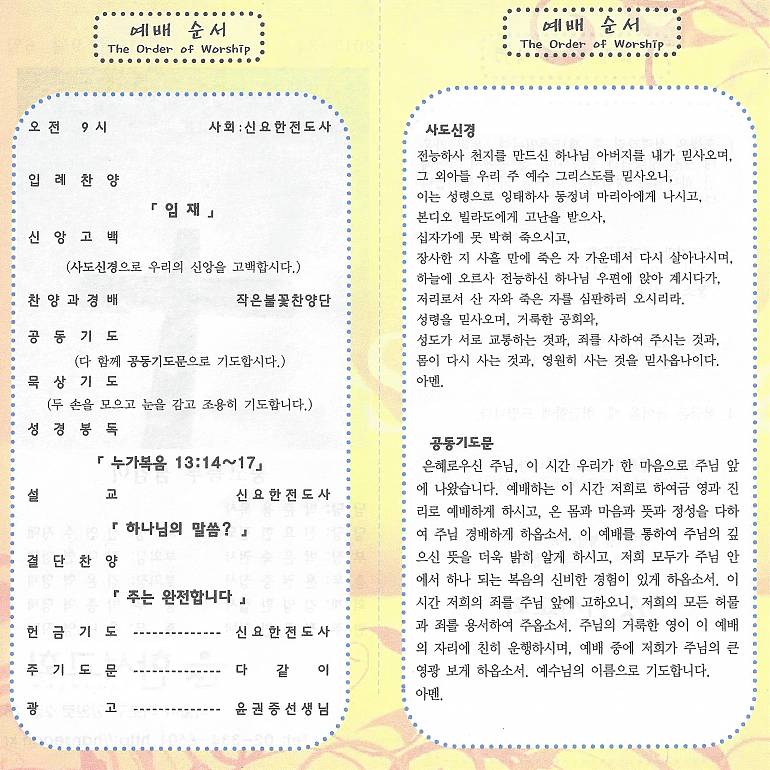 예배 순서
The Order of Worship
오전 9시 사회:신요한전도사
입례찬양
「임재」
신앙고백
(사도신경으로 우리의 신앙을 고백합시다.)
찬양과경배 작은불꽃찬양단
공동기도
(다 함께 공동기도문으로 기도합시다.)
묵상기도
(두 손을 모으고 눈을 감고 조용히 기도합니다.)
성경봉독
「누가복음 13:14~17」
설교 신요한전도사
『하나님의 말씀?』
결단찬양
『주는 완전합니다』
헌금기도 -------------- 신요한전도사
주기도문 -------------- 다같이
광고 -------------- 윤권중선생님
예배 순서
The Order of Worship
사도신경
전능하사 천지를 만드신 하나님 아버지를 내가 믿사오며,
그 외아들 우리 주 예수 그리스도를 믿사오니,
이는 성령으로 잉태하사 동정녀 마리아에게 나시고,
본디오 빌라도에게 고난을 받으사,
십자가에 못 박혀 죽으시고,
장사한 지 사흘 만에 죽은 자 가운데서 다시 살아나시며,
하늘에 오르사 전능하신 하나님 우편에 앉아 계시다가,
저리로서 산 자와 죽은 자를 심판하러 오시리라.
성령을 믿사오며, 거룩한 공회와,
성도가 서로 교통하는 것과, 죄를 사하여 주시는 것과,
몸이 다시 사는 것과, 영원히 사는 것을 믿사옵나이다.
아멘.
공동기도문
은혜로우신 주님, 이 시간 우리가 한 마음으로 주님 앞
에 나왔습니다. 예배하는 이 시간 저희로 하여금 영과 진
리로 예배하게 하시고, 온 몸과 마음과 뜻과 정성을 다하
여 주님 경배하게 하옵소서. 이 예배를 통하여 주님의 깊
으신 뜻을 더욱 밝히 알게 하시고, 저희 모두가 주님 안
에서 하나 되는 복음의 신비한 경험이 있게 하옵소서. 이
시간 저희의 죄를 주님 앞에 고하오니, 저희의 모든 허물
과 죄를 용서하여 주옵소서. 주님의 거룩한 영이 이 예배
의 자리에 친히 운행하시며, 예배 중에 저희가 주님의 큰
영광 보게 하옵소서. 예수님의 이름으로 기도합니다.
아멘.